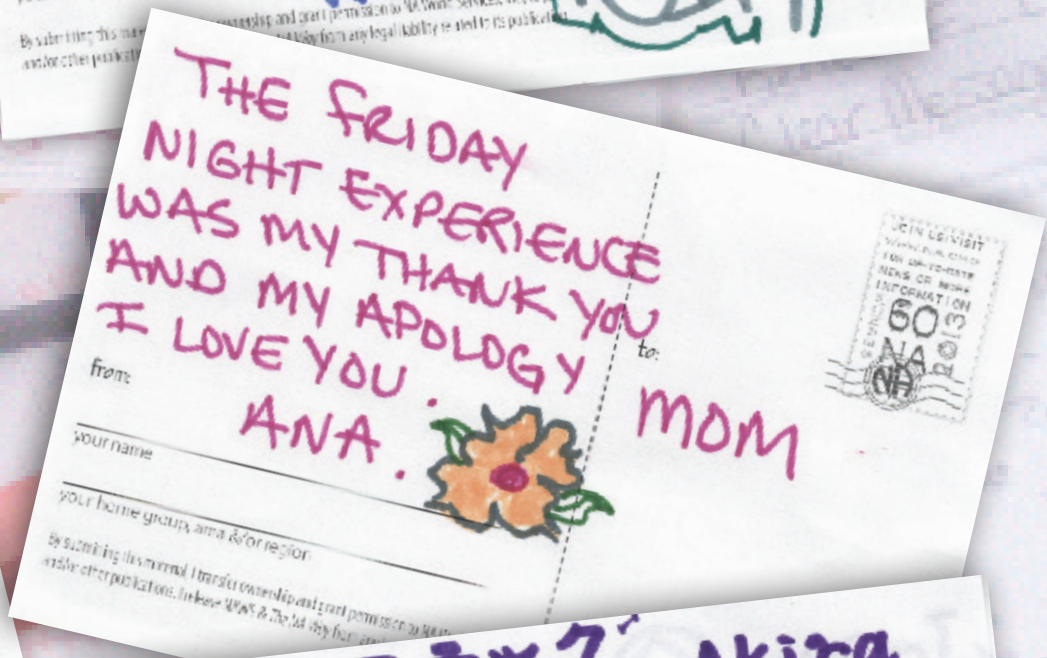 By submitting this
ownership and grant permission to NA World Services,
from any legal liability related to its publication
and/or other
THE FRIDAY
NIGHT EXPERIENCE
WAS MY THANK YOU
AND MY APOLOGY
I LOVE YOU.
ANA.
from:
your name
your home group, area &/or region
By submitting this material, I transfer ownership and grant permission to
and/or other publications. I release NAWS & The NA Way from
to:
MOM
JOIN US/VISIT
FOR UP-TO-DATE
NEWS OR MORE
INFORMATION
60
NA
2013
NA
Akira